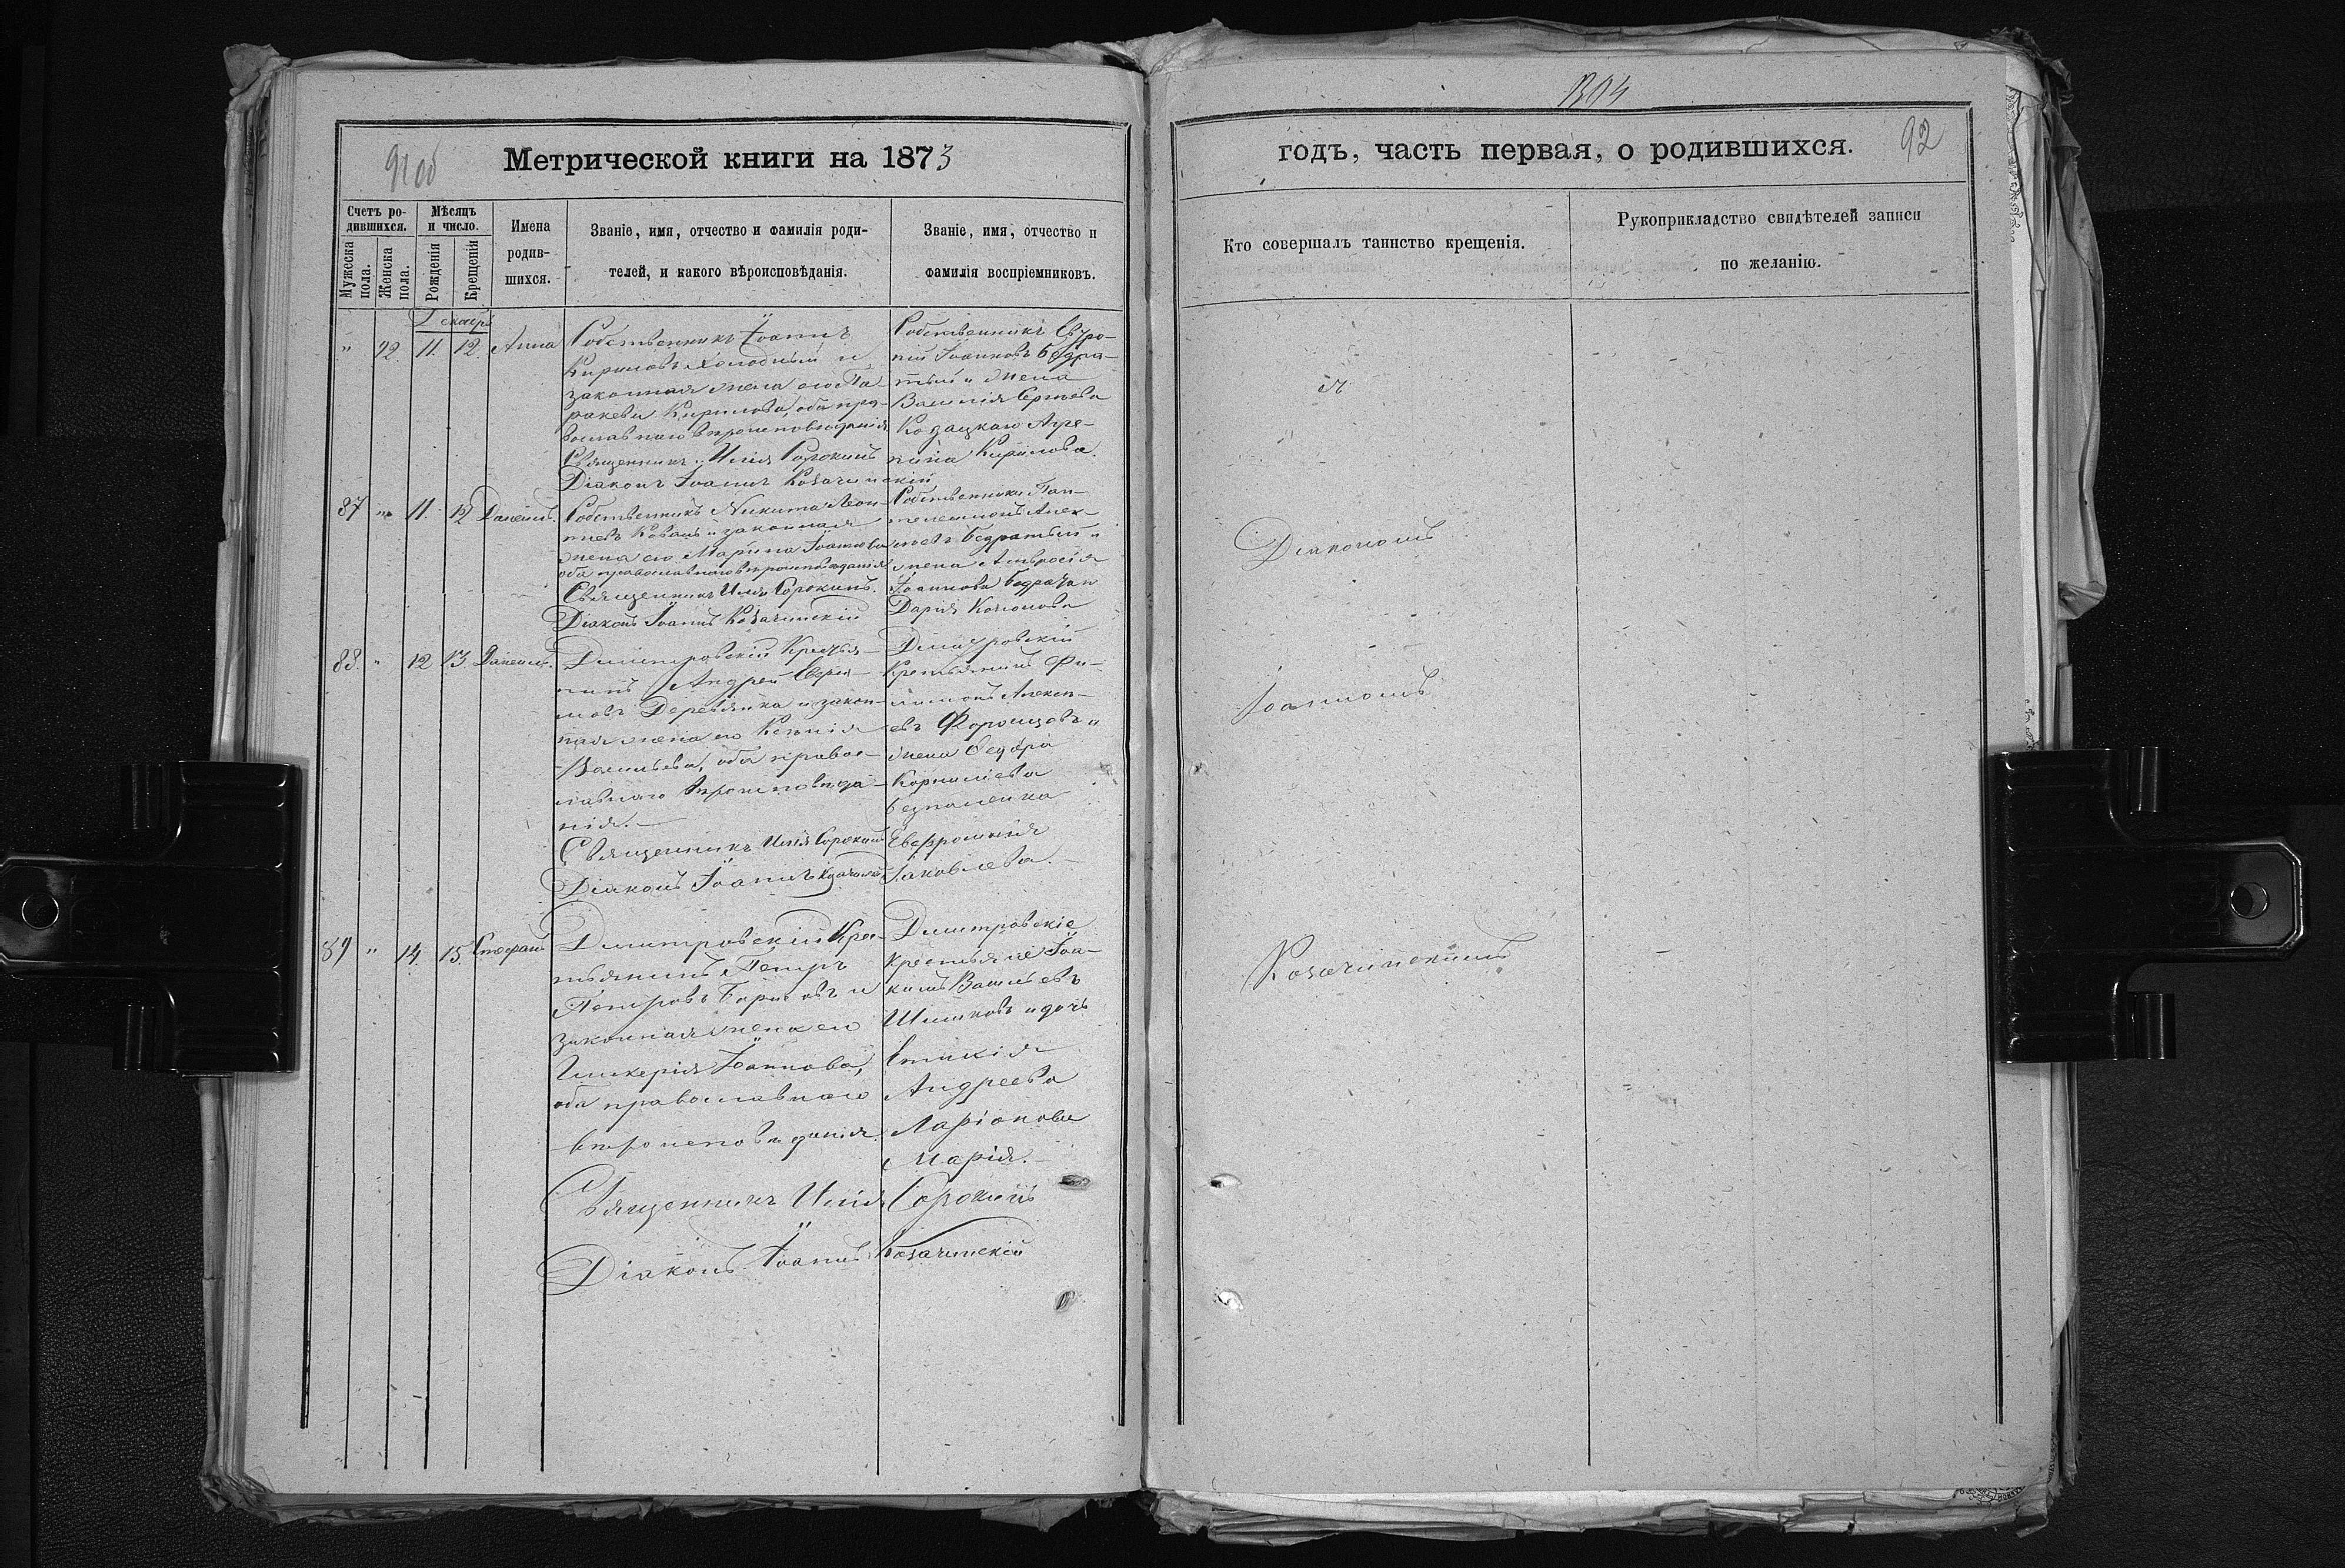 91 об
Метрической книги на 1873
Счетъ ро-
дившихся.
Мѣсяцъ
и число.
Мужеска пола.
Женска пола.
Рожденія
Крещенія
Имена
родив-
шихся.
Званіе, имя, отчество и фамилія роди-
телей, и какого вѣроисповѣданія.
Званіе, имя, отчество и
фамилія воспріемниковъ.
Декабрь
" 92. 11. 12. Анна
Собственникъ Іоаннъ
Кириловъ Холодный и
законная жена его Па
ракева Кирилова, оба пра-
вославнаго вѣроисповѣданія
Священникъ Илія Сорокинъ
Діаконъ Іоаннъ Козачинскій
Собственникъ
пій Іоанновъ
и жена
Василія Сергѣева
Козацкаго Агре-
пина Кирилова.
87 " 11. 12 Даніилъ.
Собственникъ Никита Леон-
тіевъ и законная
жена его Марина Іоаннова
оба православнаго вѣроисповѣданія
Священникъ Илія Сорокинъ.
Діаконъ Іоаннъ Козачинскій
Собственники Пан-
телеимонъ Алек-
сѣевъ Бедратый и
жена Амвросія
Іоаннова
Дарія
88. " 12 13. Даніилъ.
Димитровскій Крестья-
нинъ Андрей
Деревянка и закон-
ная жена его Ксенія
Васильева, оба правос-
лавнаго вѣроисповѣда-
нія.
Священникъ Илія Сорокинъ
Діаконъ Іоаннъ Козачинскій
Димитровскій
Крестьянинъ Фи-
лимонъ Алексѣ-
евъ и
жена Ѳедора
Корниліева
Евфросинія
Іаковлева.
89 " 14. 15. Стефанъ
Димитровскій Кре-
стьянинъ Петръ
Петровъ Борисовъ и
законная жена его
Гликерія Іоаннова,
оба православнаго
вѣроисповѣданія.
Димитровскіе
Крестьяне Іоа-
кимъ Васильевъ
и дочь
Андреева
Ларіонова
Марія.
Священникъ Илія Сорокинъ
Діаконъ Іоаннъ Козачинскій
92
годъ, часть первая, о родившихся.
Кто совершалъ таинство крещенія.
Рукоприкладство свидѣтелей записи
по желанію.
съ
Діакономъ
Іоанномъ
Козачинскимъ